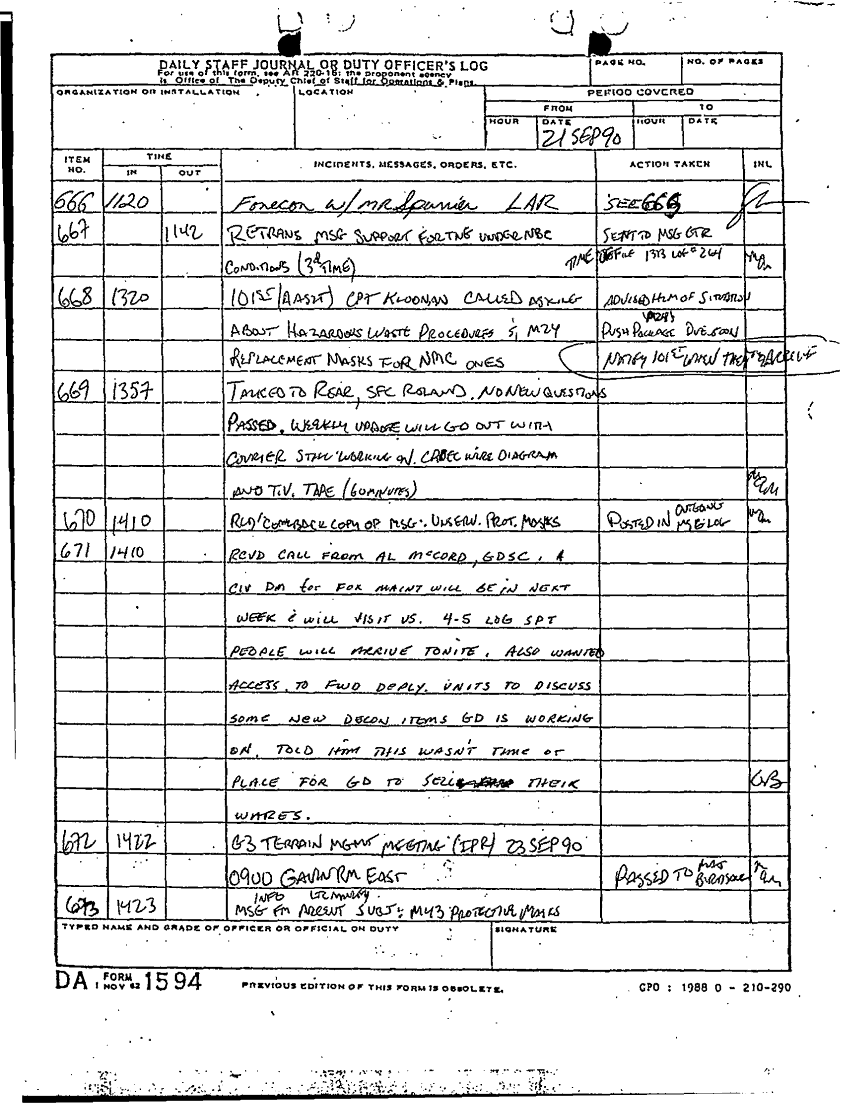 DAILY STAFF JOURNAL OR DUTY OFFICER'S LOG
For use of this form, see AR 220-15; the proponent agency
is Office of The Deputy Chief of Staff for Operations & Plans.
PAGE NO.
NO. OF PAGES
ORGANIZATION OR INSTALLATION
LOCATION
PERIOD COVERED
FROM
TO
HOUR
DATE
HOUR
DATE
21 SEP 90
ITEM NO.
TIME
IN
OUT
INCIDENTS, MESSAGES, ORDERS, ETC.
ACTION TAKEN
INL
666 1120 Fonecon w/ MR Spurrier LAR SEE 666
667 1142 RETRANS MSG SUPPORT FOR TNG UNDER NBC SENT TO MSG CTR
CONDITIONS (3rd TIME) TIME OF FILE 1313 LOG # 264
668 1320 101st (AASLT) CPT KLOONAN CALLED ASKING ADVISED HIM OF SITUATION
ABOUT HAZARDOUS WASTE PROCEDURES & M24 PUSH PACKAGE
REPLACEMENT MASKS FOR NMC ONES NOTIFY 101st WHEN THEY ARRIVE
669 1357 TALKED TO REAR, SFC ROLAND. NO NEW QUESTIONS
PASSED. WEEKLY UPDATE WILL GO OUT WITH
COURIER STILL WORKING ON. CRDEC WIRE DIAGRAM
AND T.V. TAPE (60 MINUTES)
670 1410 RCD/COMEBACK COPY OF MSG: UNSERV. PROT. MASKS POSTED IN OUTGOING MSG LOG
671 1410 RCVD CALL FROM AL McCORD, GDSC. A
CIV DM for FOX MAINT WILL BE IN NEXT
WEEK & WILL VISIT US. 4-5 LOG SPT
PEOPLE WILL ARRIVE TONITE. ALSO WANTED
ACCESS TO FWD DEPLY. UNITS TO DISCUSS
SOME NEW DECON ITEMS GD IS WORKING
ON. TOLD HIM THIS WASN'T TIME OR
PLACE FOR GD TO SELL THEIR
WARES. GB
672 1422 G3 TERRAIN MGMT MEETING (IPR) 23 SEP 90
0900 GAVIN RM EAST PASSED TO MAJ
673 1423 INFO
MSG FM ARCENT SUBJ: M43 PROTECTIVE MASKS
TYPED NAME AND GRADE OF OFFICER OR OFFICIAL ON DUTY
SIGNATURE
DA FORM 1 NOV 62 1594
PREVIOUS EDITION OF THIS FORM IS OBSOLETE.
GPO : 1988 O - 210-290